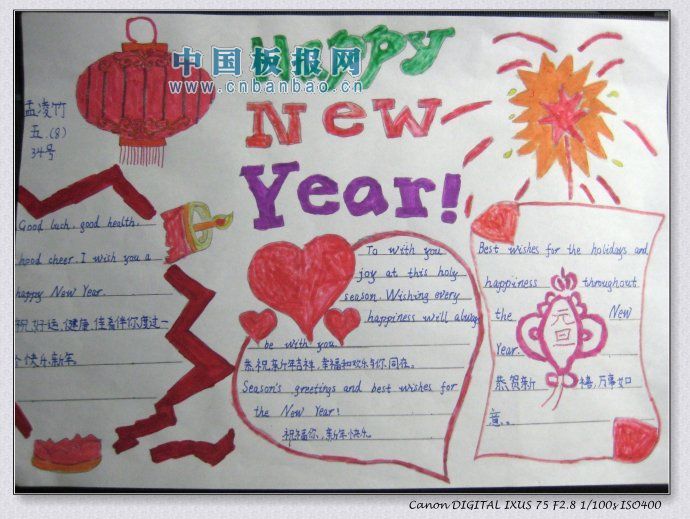 Happy
New
Year!
中国板报网
www.cnbanbao.cn
孟凌竹
五.(8)
34号
Good luch, good health,
hood cheer. I wish you a
happy New Year.
祝好运,健康,佳肴伴你度过一
个快乐新年.
To with you
joy at this holy
season. Wishing every
happiness will always
be with you.
恭祝新年吉祥,幸福和欢乐与你同在。
Season's greetings and best wishes for
the New Year!
祝福你,新年快乐
Best wishes for the holidays and
happiness throughout
the New
Year.
元旦
恭贺新禧,万事如
意。
Canon DIGITAL IXUS 75 F2.8 1/100s ISO400